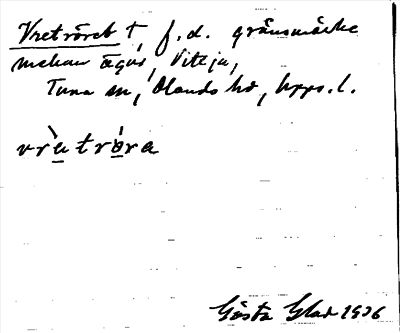 Vretröret † f.d. gränsmärke
mellan ägor i Viteju,
Tuna sn, Olands hd, Upps. l.
vrètróra
Gösta Glad 1936